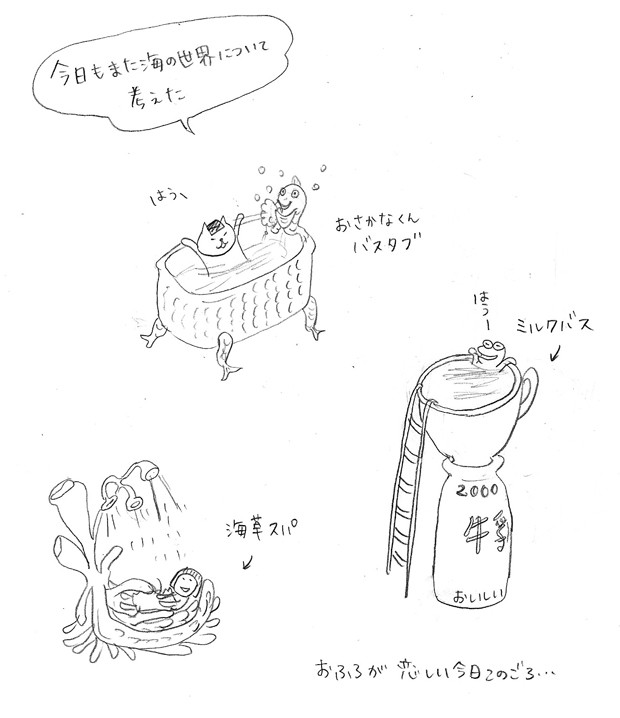 今日もまた海の世界について
考えた
はぅ、
おさかなくん
バスタブ
はぅー
ミルクバス
2000
牛乳
おいしい
海草スパ
おふろが恋しい今日このごろ…